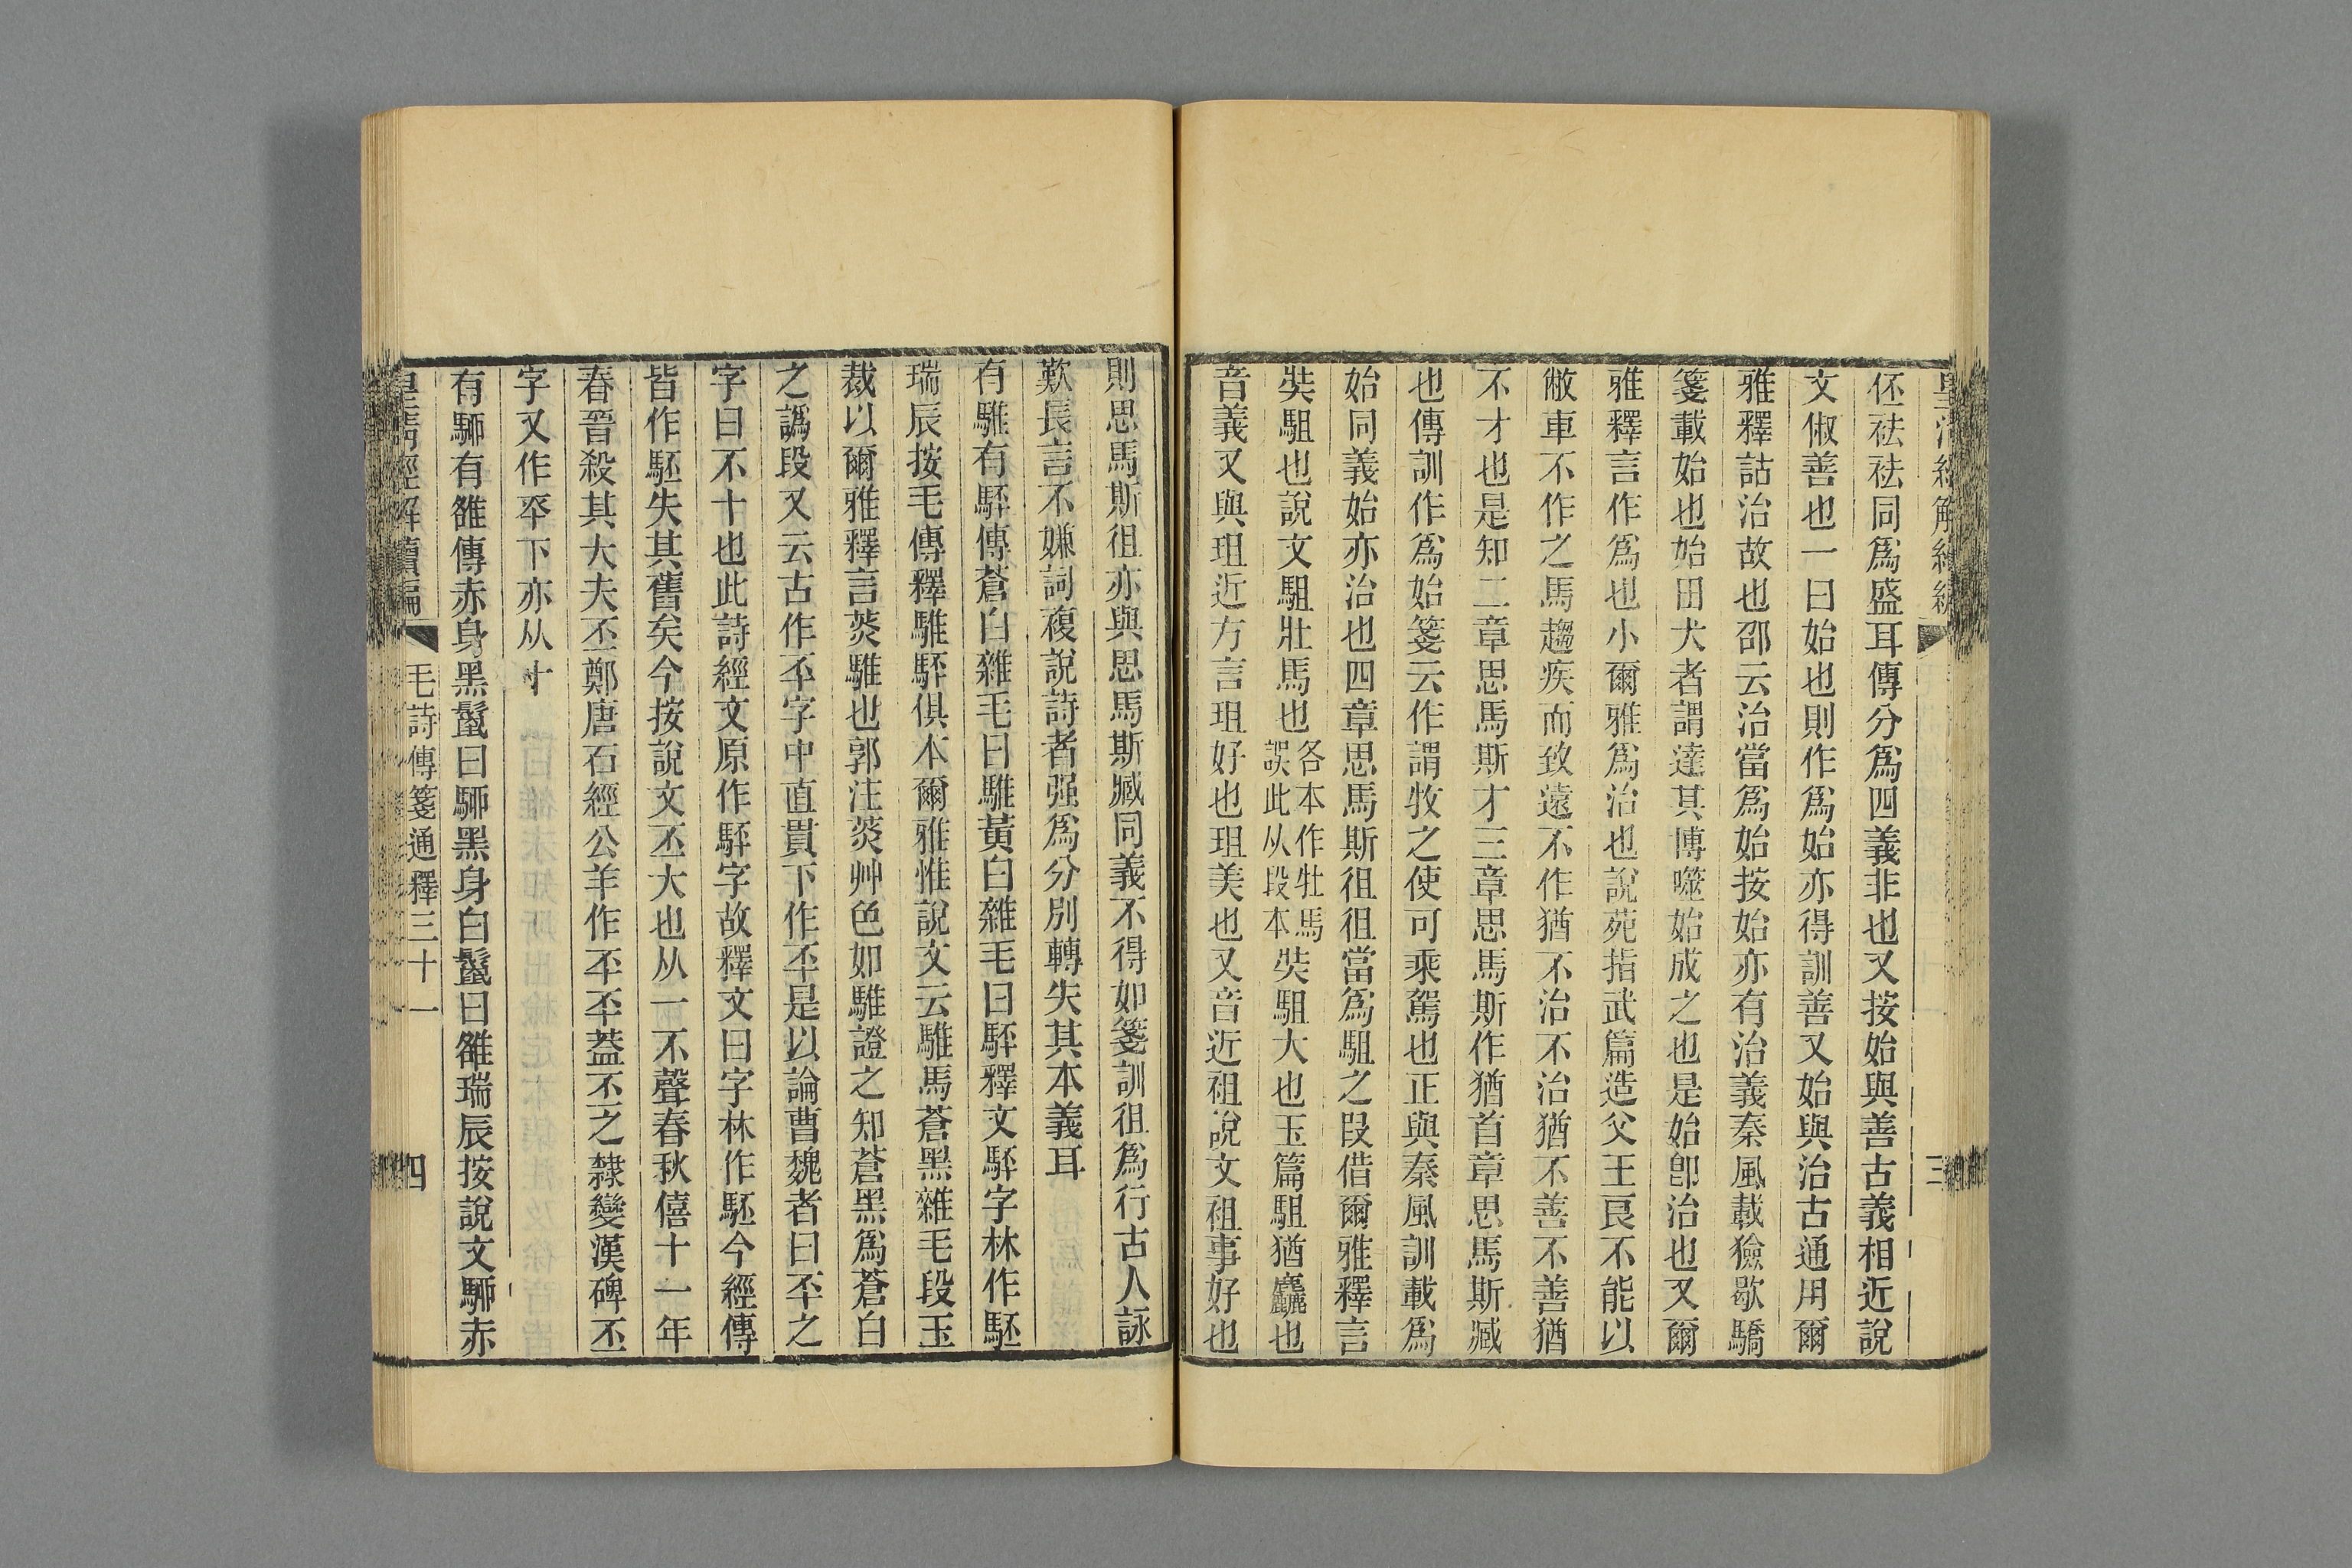 伾袪袪同爲盛耳傳分爲四義非也又按始與善古義相近說
文俶善也一曰始也則作爲始亦得訓善又始與治古通用爾
雅釋詁治故也邵云治當爲始按始亦有治義秦風載獫歇驕
箋載始也始田犬者謂達其博噬始成之也是始卽治也又爾
雅釋言作爲也小爾雅爲治也說苑指武篇造父王良不能以
敝車不作之馬趨疾而致遠不作猶不治不治猶不善不善猶
不才也是知二章思馬斯才三章思馬斯作猶首章思馬斯臧
也傳訓作爲始箋云作謂牧之使可乘駕也正與秦風訓載爲
始同義始亦治也四章思馬斯徂徂當爲駔之叚借爾雅釋言
奘駔也說文駔壯馬也各本作牡馬誤此从段本奘駔大也玉篇駔猶麤也
音義又與珇近方言珇好也珇美也又音近祖說文祖事好也
三
則思馬斯徂亦與思馬斯臧同義不得如箋訓徂爲行古人詠
歎長言不嫌詞複說詩者强爲分別轉失其本義耳
有騅有駓傳蒼白雜毛曰騅黃白雜毛曰駓釋文駓字林作駓
瑞辰按毛傳釋騅駓俱本爾雅惟說文云騅馬蒼黑雜毛段玉
裁以爾雅釋言菼騅也郭注菼艸色如騅證之知蒼黑爲蒼白
之譌段又云古作丕字中直貫下作㔻是以論曹魏者曰丕之
字曰不十也此詩經文原作駓字故釋文曰字林作駓今經傳
皆作駓失其舊矣今按說文丕大也从一不聲春秋僖十一年
春晉殺其大夫丕鄭唐石經公羊作㔻㔻葢丕之隸變漢碑丕
字又作㔻下亦从十
有騂有雒傳赤身黑鬣曰騂黑身白鬣曰雒瑞辰按說文騂赤
皇淸經解續編
毛詩傳箋通釋三十一
四